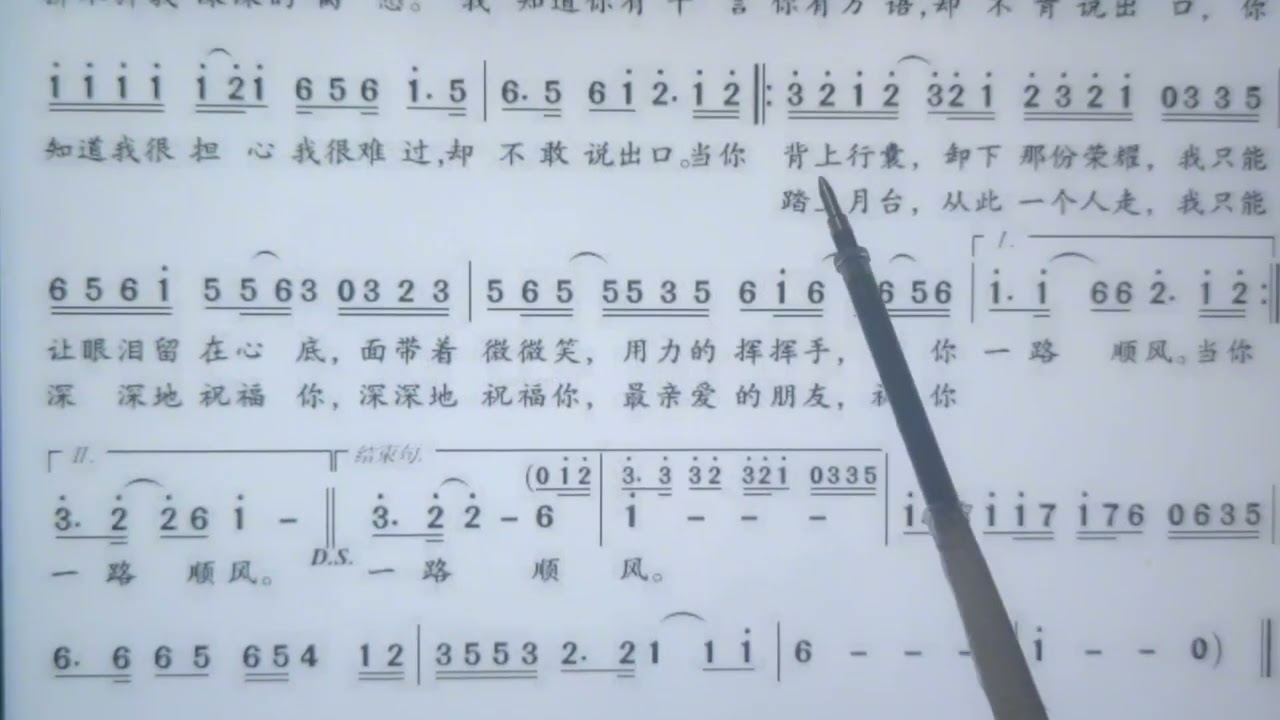 我 知道你有 千 言 你有万 语,却 不 肯 说出 口, 你
i i i i i 2 i 6 5 6 i. 5 | 6. 5 6 i 2. i 2 ‖: 3 2 i 2 3 2 i 2 3 2 i 0 3 3 5
知道我很 担 心 我很难 过,却 不 敢 说出口。当你 背上行囊, 卸下 那份荣耀, 我只能
踏 月台, 从此 一个人走, 我只能
I.
6 5 6 i 5 5 6 3 0 3 2 3 | 5 6 5 5 5 3 5 6 i 6 6 5 6 | i. i 6 6 2. i 2 :‖
让眼泪留 在心 底, 面带着 微微笑, 用力的 挥挥手, 你 一 路 顺风。当你
深 深地 祝福 你, 深深地 祝福你, 最亲爱 的朋友, 你
II. 结束句.
(0 i 2 | 3. 3 3 2 3 2 i 0 3 3 5
3. 2 2 6 i – ‖ 3. 2 2 – 6 | i – – – | i i i 7 i 7 6 0 6 3 5 |
一 路 顺 风。 D.S. 一 路 顺 风。
6. 6 6 5 6 5 4 1 2 | 3 5 5 3 2. 2 1 1 i | 6 – – – | i – – 0) ‖